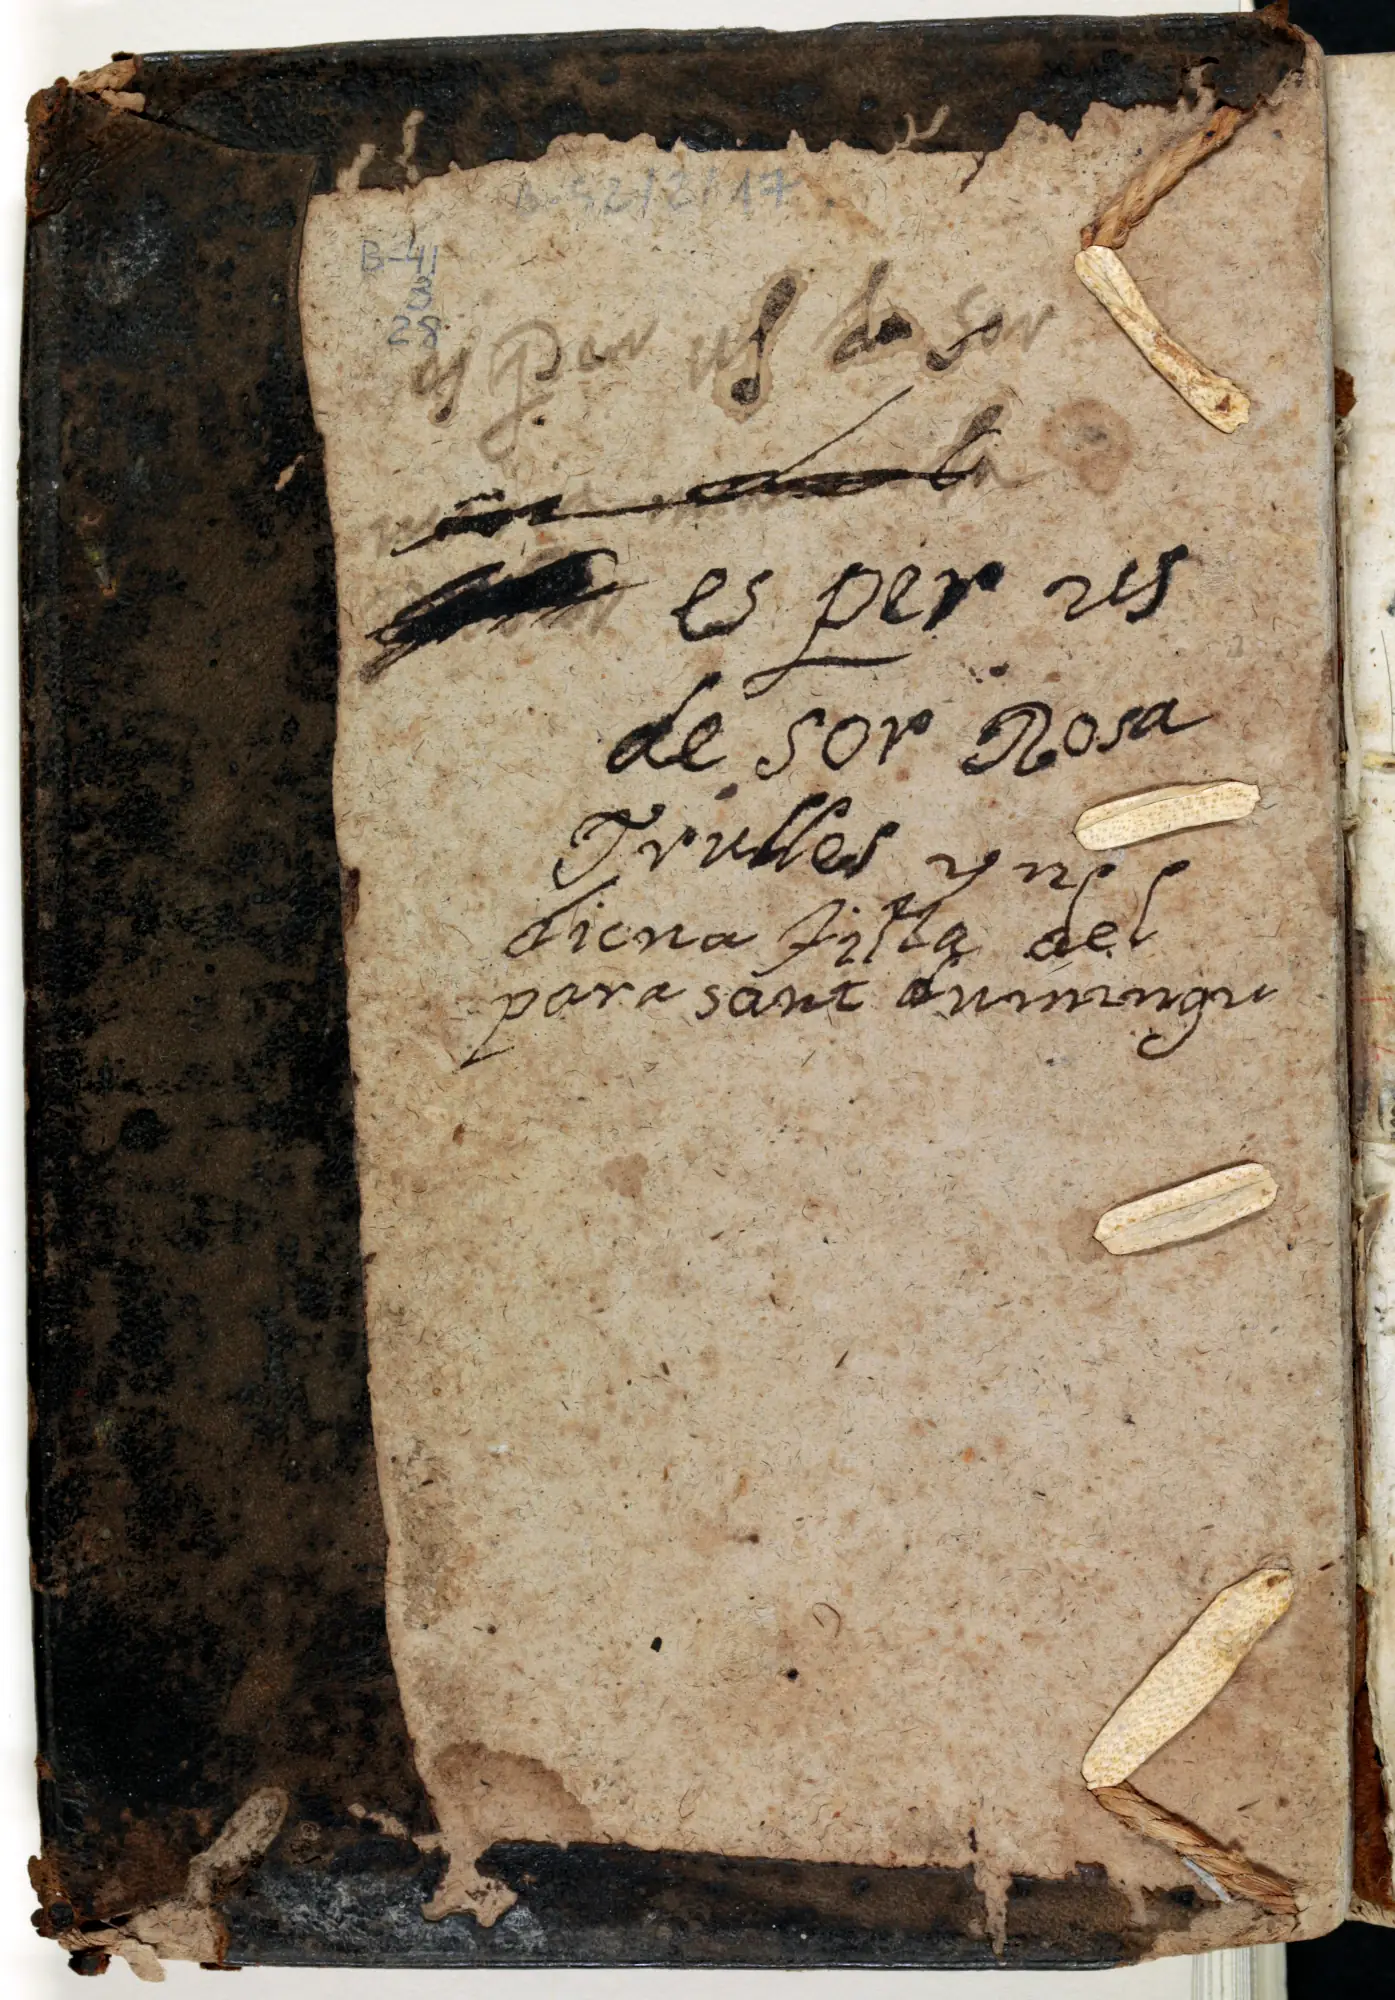 B-52/2/17
B-41
es per us de sor
es per us
de sor Rosa
Trulles yn
diena filla del
para sant dumingu